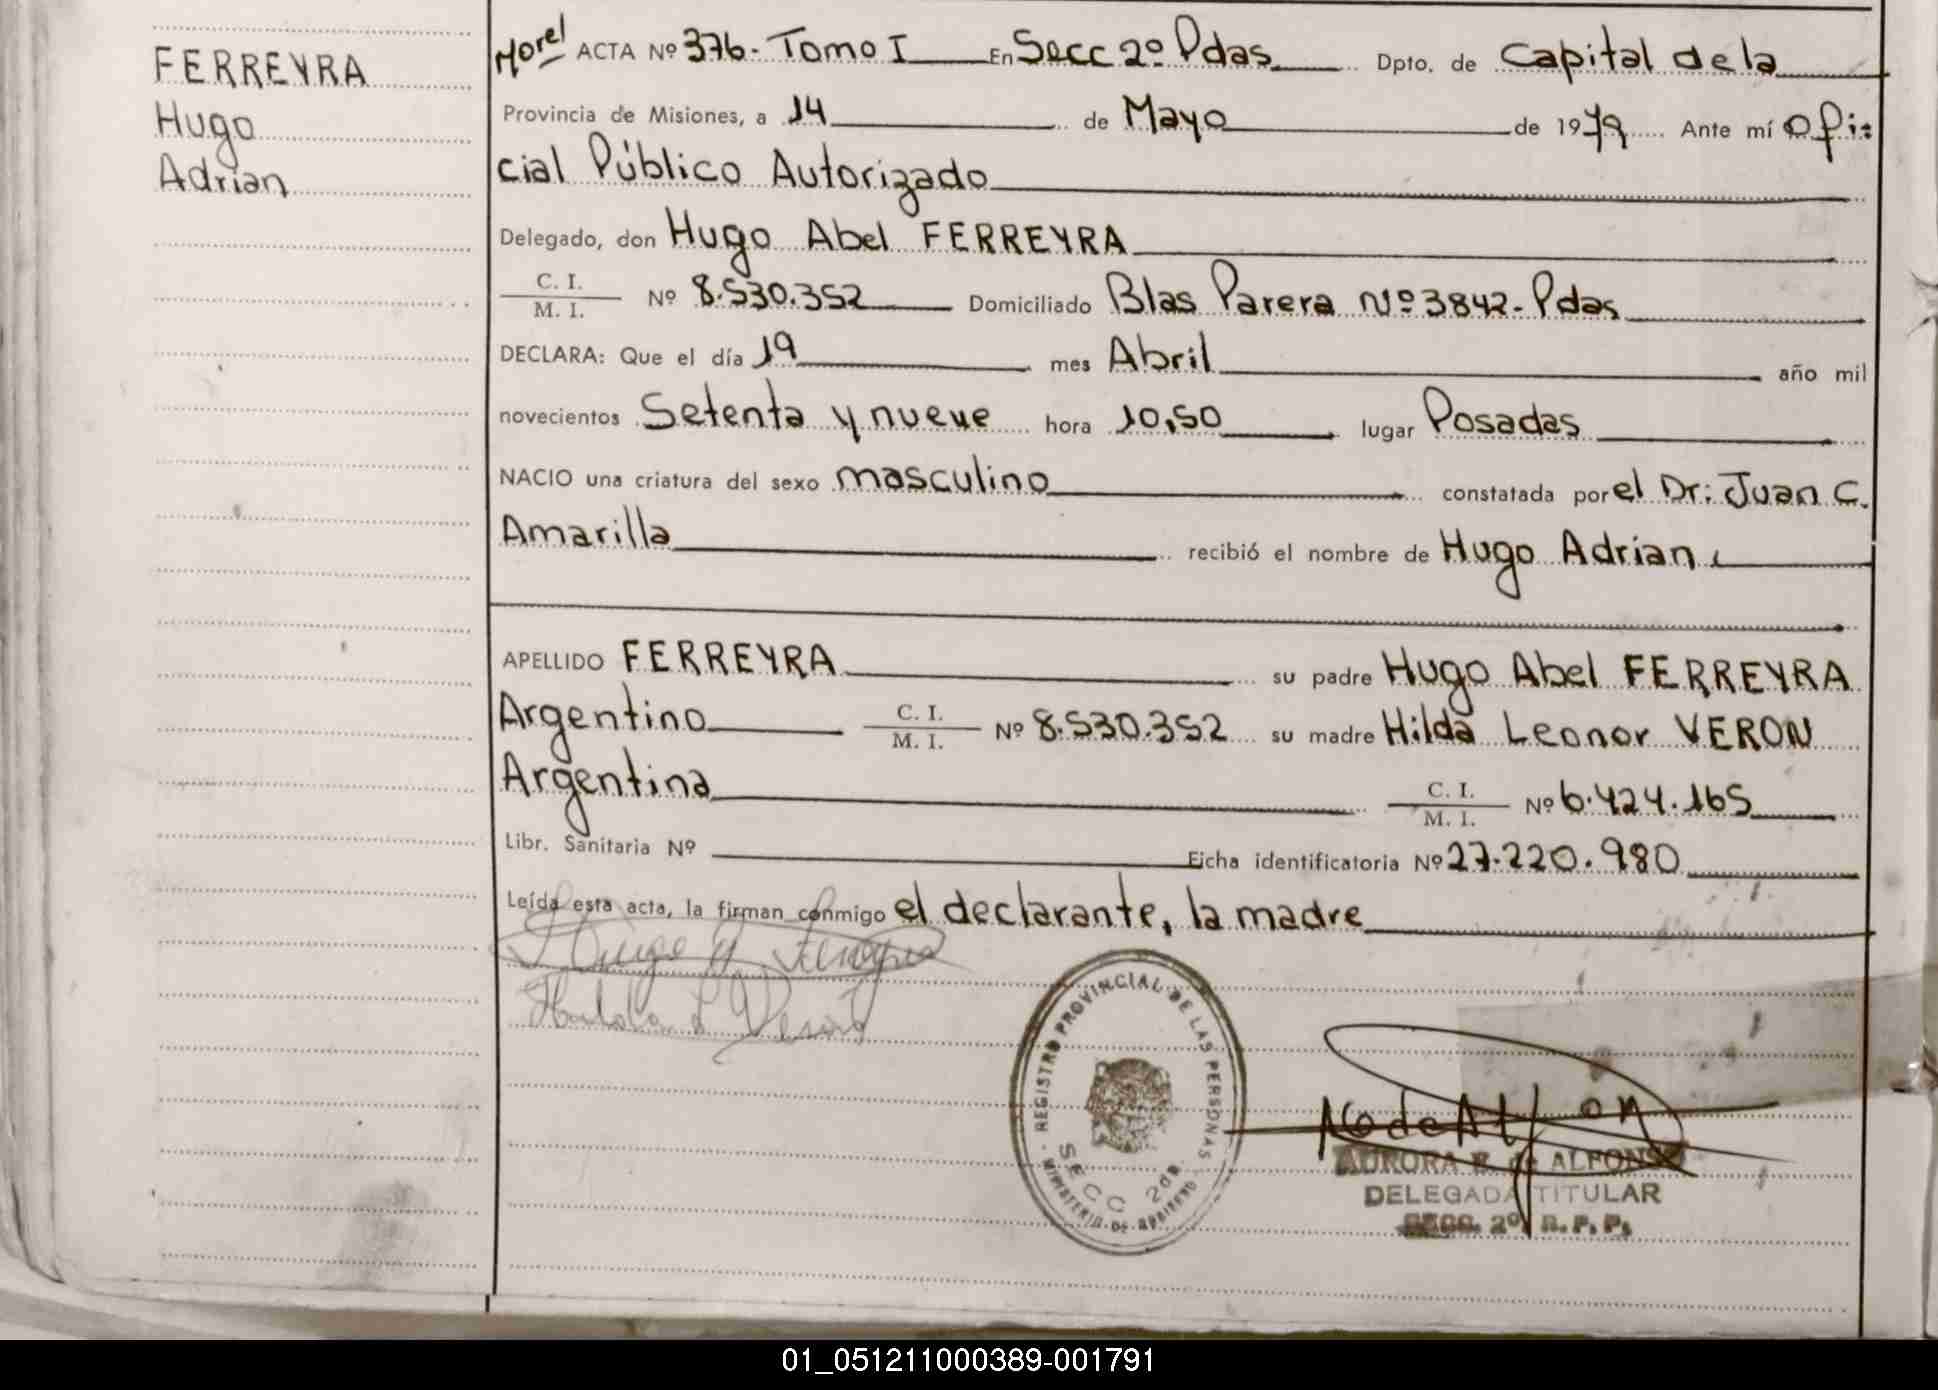 FERREYRA
Hugo
Adrian
Morel ACTA Nº 376. Tomo I En Secc 2º Pdas Dpto. de Capital de la
Provincia de Misiones, a 14 de Mayo de 1979 Ante mí Ofi:
cial Público Autorizado
Delegado, don Hugo Abel FERREYRA
C. I.
M. I. Nº 8.530.352 Domiciliado Blas Parera Nº 3842-Pdas
DECLARA: Que el día 19 mes Abril año mil
novecientos Setenta y nueve hora 10,50 lugar Posadas
NACIO una criatura del sexo masculino constatada por el Dr: Juan C.
Amarilla recibió el nombre de Hugo Adrian
APELLIDO FERREYRA su padre Hugo Abel FERREYRA
Argentino C. I.
M. I. Nº 8.530.352 su madre Hilda Leonor VERON
Argentina C. I.
M. I. Nº 6.424.165
Libr. Sanitaria Nº Ficha identificatoria Nº 27.220.980
Leída esta acta, la firman conmigo el declarante, la madre
REGISTRO PROVINCIAL DE LAS PERSONAS
SECC 2da
MINISTERIO DE GOBIERNO
AURORA E. de ALFONSO
DELEGADA TITULAR
SECC. 2º R. P. P.
01_051211000389-001791